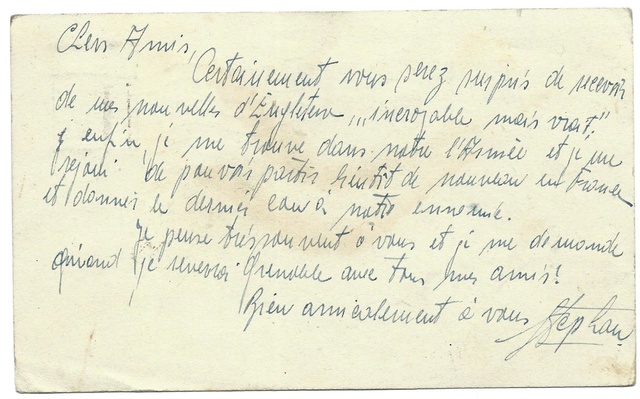 Chers Amis,
Certainement vous serez surpris de recevoir
de mes nouvelles d'Engleterre ,,,incroyable mais vrai".
y enfin, je me trouve dans notre l'Armée et je me
rejoui de pouvoir partir bientôt de nouveau en France
et donner le dernier coup à notre ennemie.
Je pense très souvent à vous et je me demande
quand je reverrai Grenoble avec tous mes amis!
Bien amicalement à vous Stephan